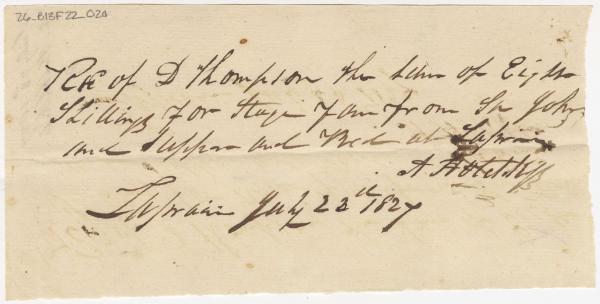 26_B13F22_020
Rec of D Thompson the sum of Eight
Shillings for Stage fare from St Johns
and Supper and Bed at Laprairie
A Hotchkiss
Laprairie July 22th 1827